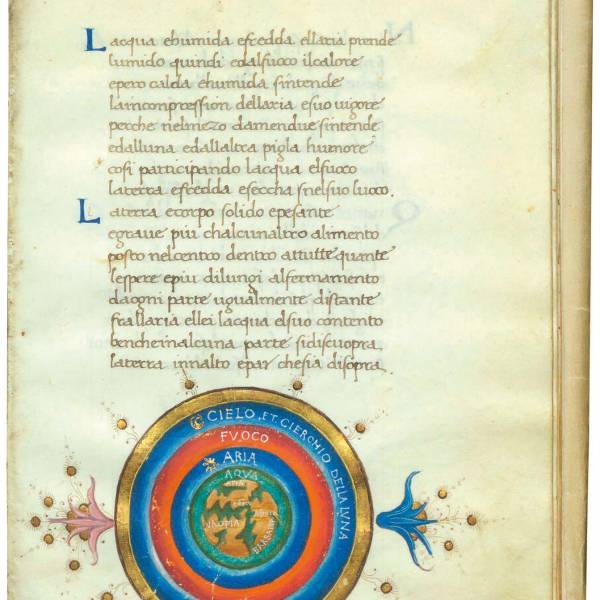 Lacqua ehumida efredda ellaria prende
lumido quindi edalfuoco ilcalore
epero calda ehumida sintende
laincompression dellaria esuo vigore
perche nelmezo damendue sintende
edalluna edallaltra pigla humore
cosi participando lacqua elfuoco
laterra efredda eseccha snelsuo luoco.
Laterra ecorpo solido epesante
egraue piu chalcunaltro alimento
posto nelcentro dentro attutte quante
lespere epiu dilungi alfermamento
daogni parte ugualmente distante
frallaria ellei lacqua elsuo contento
bencheinalcuna parte sidiscuopra
laterra innalto epar chesia disopra.
CIELO, ET CIERCHIO DELLA LUNA
FVOCO
ARIA
AQVA